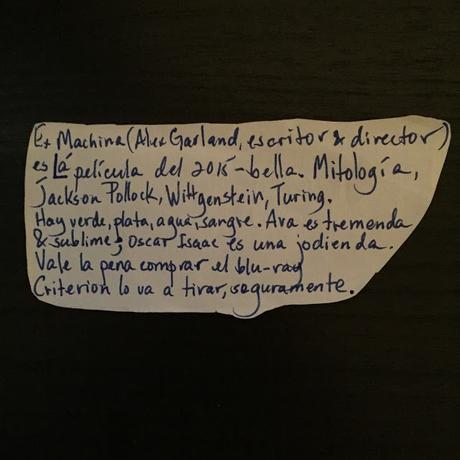 Ex Machina (Alex Garland, escritor & director)
es LA película del 2015 - bella. Mitología,
Jackson Pollock, Wittgenstein, Turing.
Hay verde, plata, agua, sangre. Ava es tremenda
& sublime; Oscar Isaac es una jodienda.
Vale la pena comprar el blu-ray
Criterion lo va a tirar, seguramente.